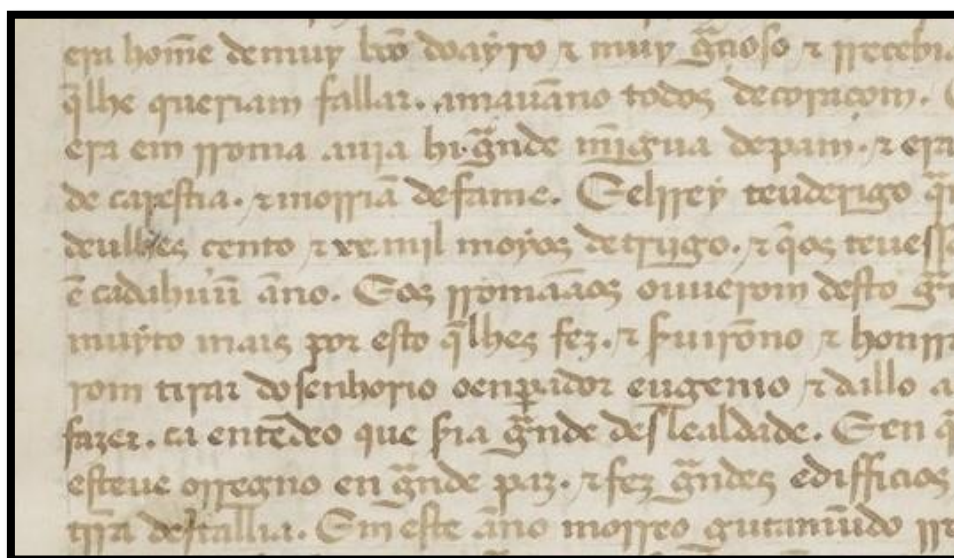 era home᷉ de muy bõo doayro ⁊ muy gͣcioso ⁊ rrecebia
q̃lhe queriam fallar. amauãno todos de coraçom.
era em rroma auia hi gͣnde mĩgua de pam. ⁊ era
de carestia. ⁊ morriã de fame. E elrrey teuderigo
deulhes cento ⁊ mil moyos de trijgo. ⁊ q̃os
ẽ cada huũ ãno. E os rromãaos ouuerom desto
muyto mais por esto q̃lhes fez. ⁊ ⁊
rom tirar do senhorio o enp̱ador eugenio ⁊ dallo
fazer. ca entẽdeo que ẜia gͣnde deslealdade. E en
esteue o rregno en gͣnde paz. ⁊ fez gͣndes edifficios
trr̃a de stallia. Em este ãno morreo